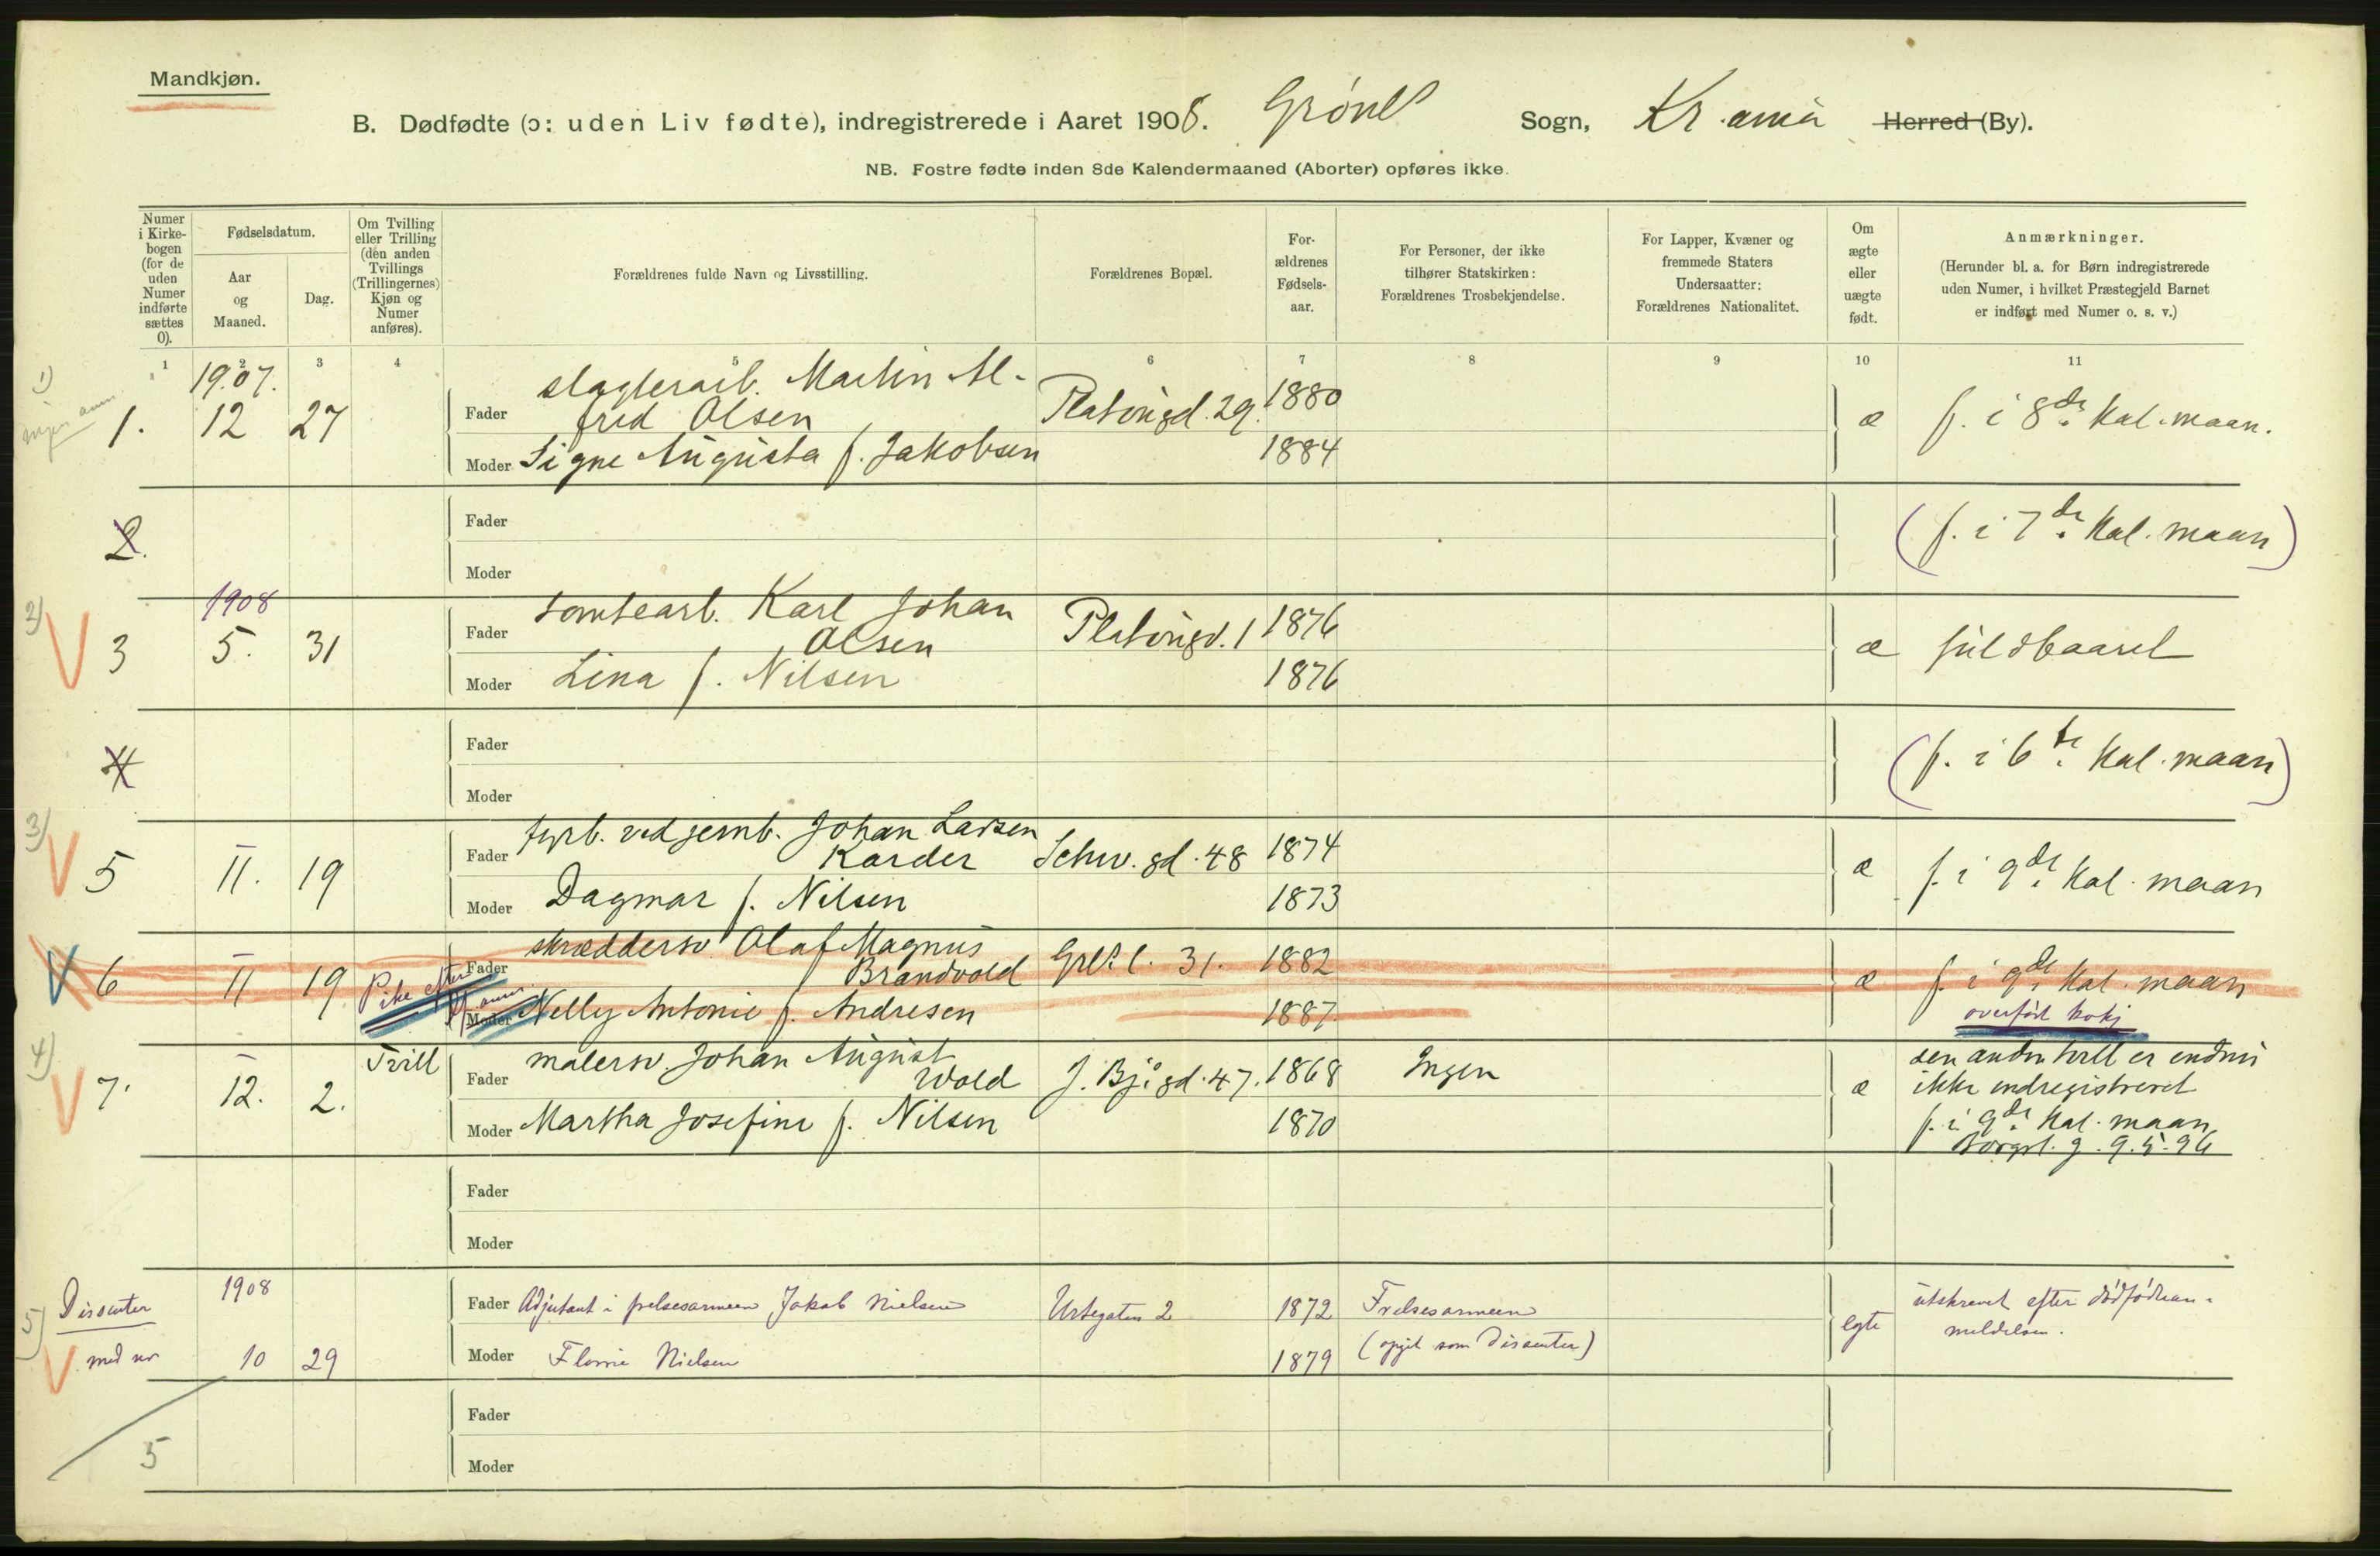 Mandkjøn.
B. Dødfødte (ɔ: uden Liv fødte), indregistrerede i Aaret 1908. Grønl Sogn, Kr.ania Herred (By).
NB. Fostre fødte inden 8de Kalendermaaned (Aborter) opføres ikke.
Numer i Kirke-bogen (for de uden Numer indførte sættes 0).
Fødselsdatum.
Aar og Maaned.
Dag.
Om Tvilling eller Trilling (den anden Tvillings (Trillingernes) Kjøn og Numer anføres).
Forældrenes fulde Navn og Livsstilling.
Forældrenes Bopæl.
For-ældrenes Fødsels-aar.
For Personer, der ikke tilhører Statskirken: Forældrenes Trosbekjendelse.
For Lapper, Kvæner og fremmede Staters Undersaatter: Forældrenes Nationalitet.
Om ægte eller uægte født.
Anmærkninger.
(Herunder bl. a. for Børn indregistrerede uden Numer, i hvilket Præstegjeld Barnet er indført med Numer o. s. v.)
1 2 3 4 5 6 7 8 9 10 11
1) 1907.
slagterarb. Martin Al-
1. 12 27 Fader fred Olsen Platousgd. 29. 1880 æ f. i 8de Kal. maan.
Moder Signe Augusta f. Jakobsen 1884
2. Fader (f. i 7de Kal. maan)
Moder
2) 1908
tomtearb. Karl Johan
V 3 5. 31 Fader Olsen Platousgd. 1 1876 æ fuldbaaret
Moder Lina f. Nilsen 1876
4 Fader (f. i 6te Kal. maan)
Moder
3) fyrb. ved jernb. Johan Larsen
V 5 11. 19 Fader Karder Schw. gd. 48 1874 æ f. i 9de Kal. maan
Moder Dagmar f. Nilsen 1873
skræddersv. Olaf Magnus
V 6 11 19 Pike efter Fader Brandvold Grl. l. 31. 1882 æ f. i 9de Kal. maan
Moder Nelly Antonie f. Andresen 1887 overført
4) Tvill malersv. Johan August den anden tvill er endnu
V 7. 12. 2. Fader Wold J. Bj. gd. 47. 1868 Ingen æ ikke indregistreret
Moder Martha Josefine f. Nilsen 1870 f. i 9de Kal. maan
Borgl. g. 9.5.96
Fader
Moder
5) Dissenter 1908 Fader Adjutant i frelsesarmeen Jakob Nielsen Urtegaten 2 1872 Frelsesarmeen egte utskrevet efter dødfødtean-
meldelsen.
V med nr 10 29 Moder Florrie Nielsen 1879 (opgit som Dissenter)
Fader
5
Moder